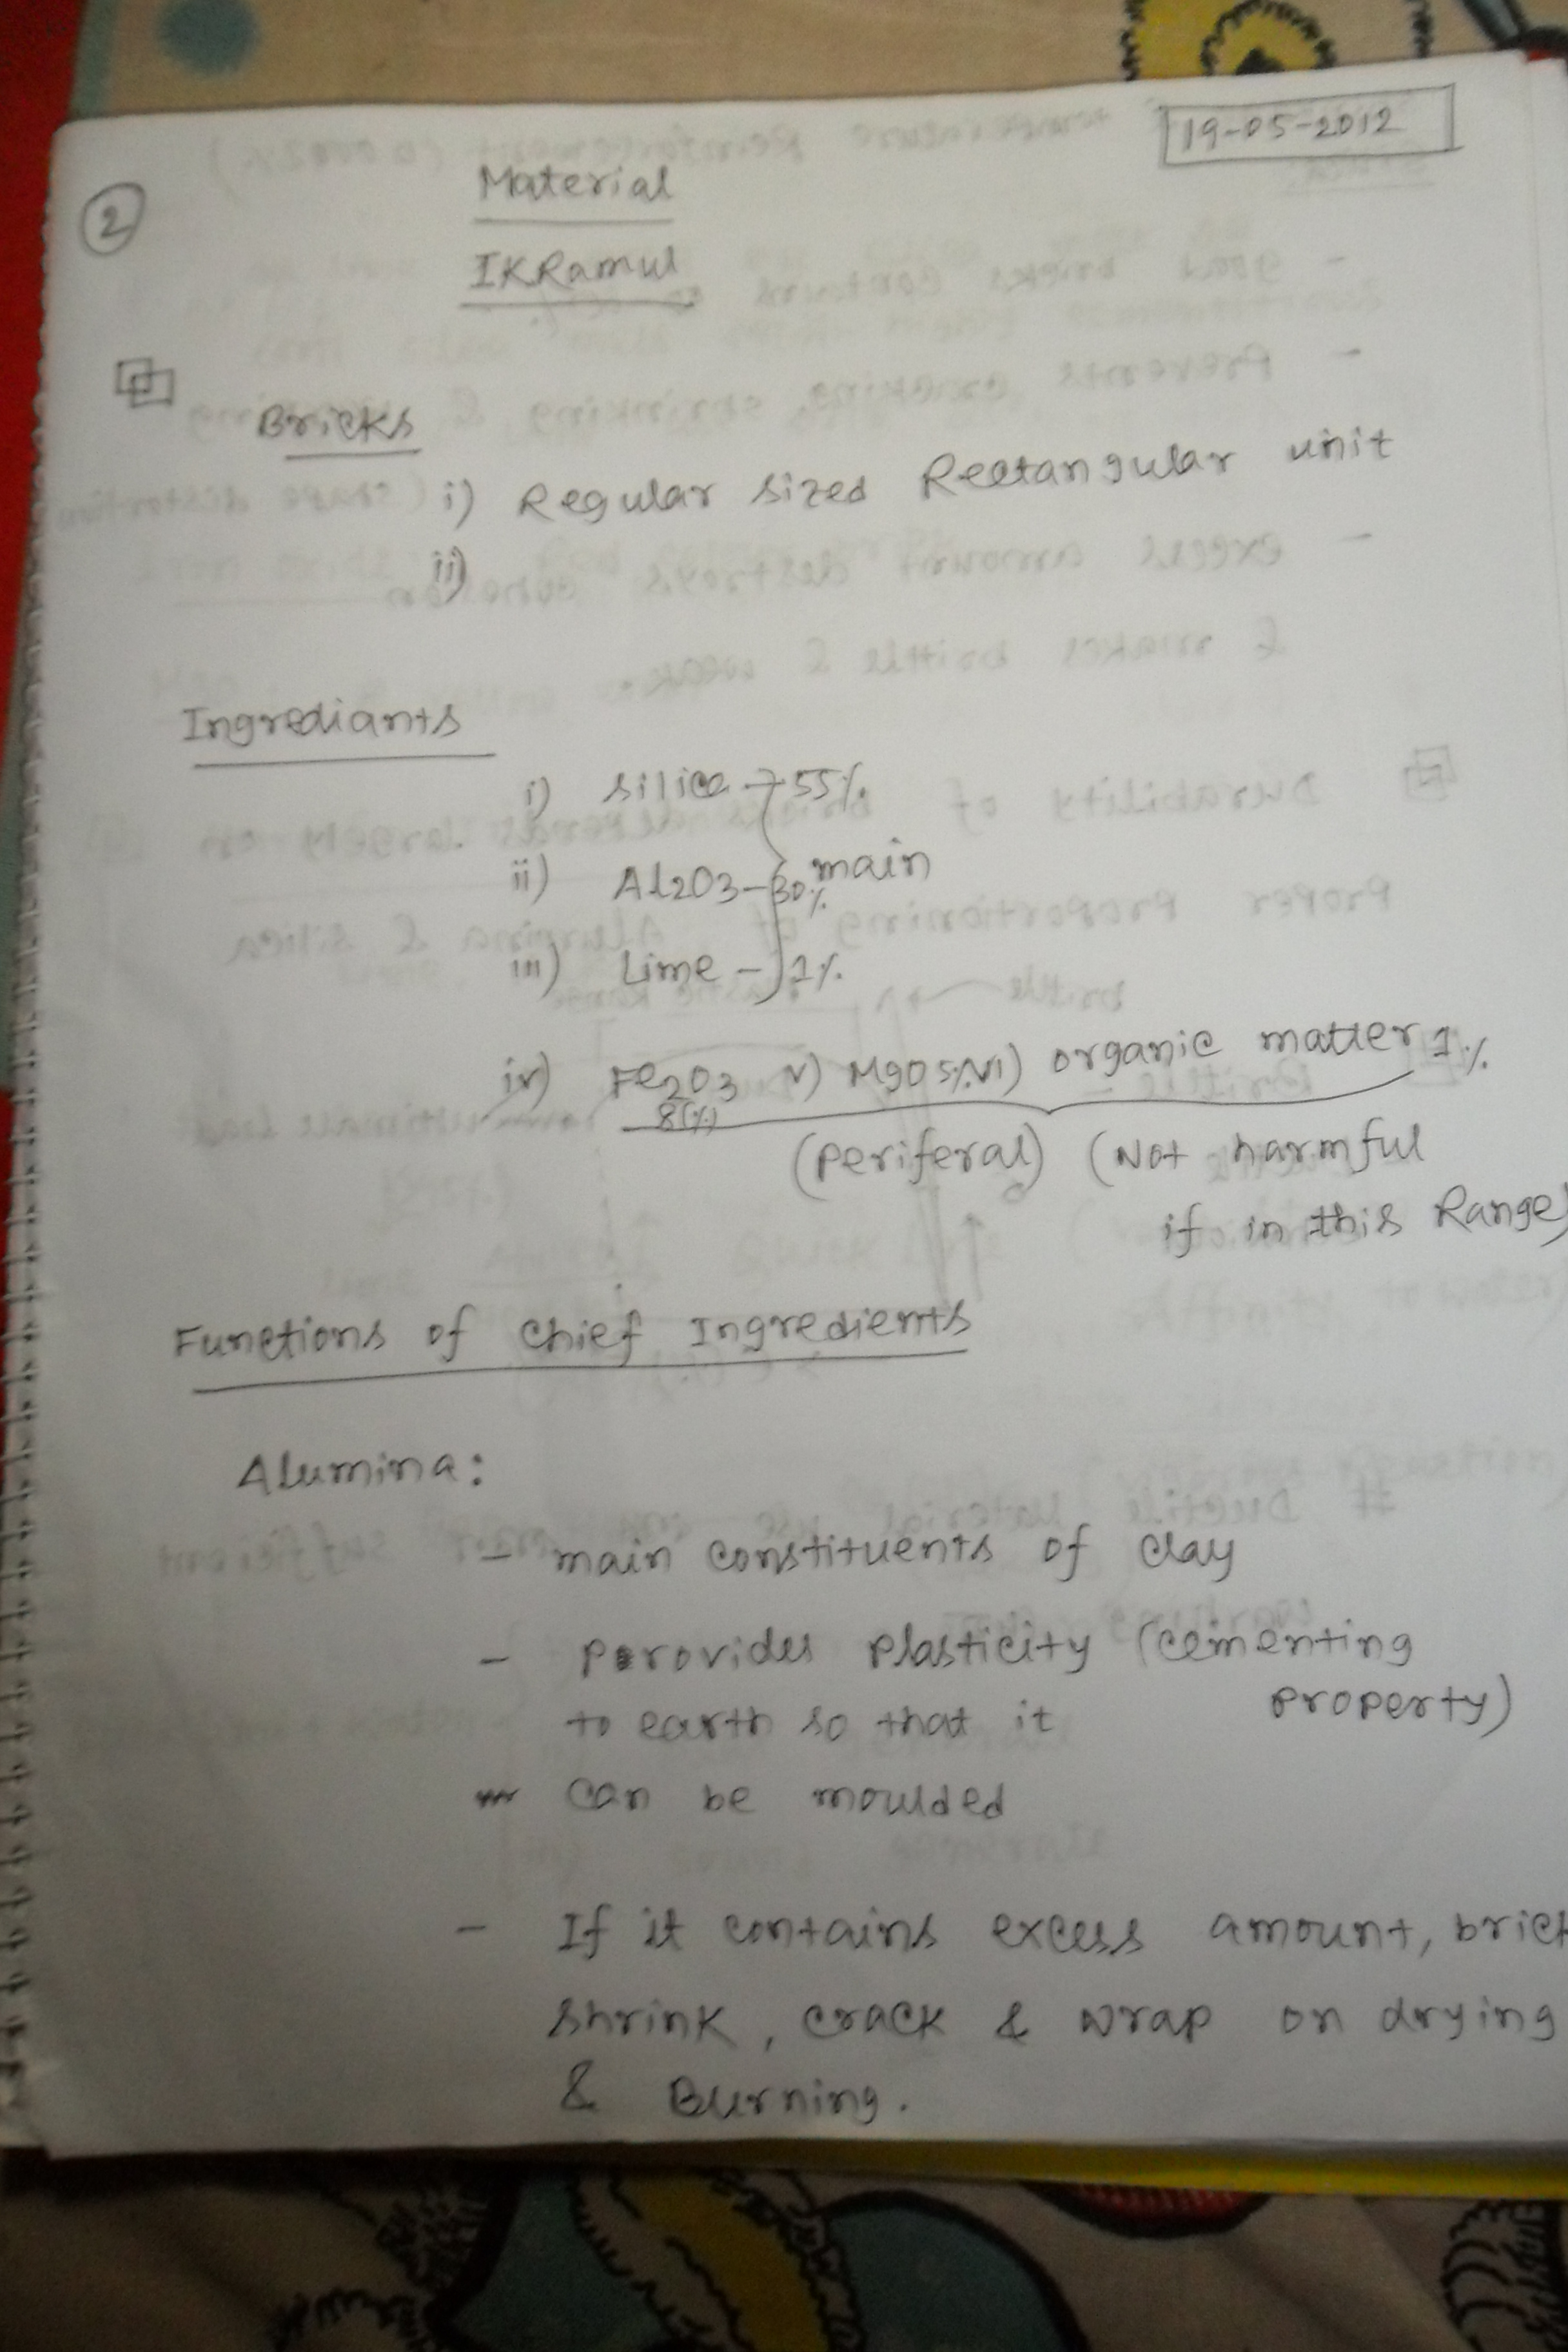 19-05-2012
2
Material
IKRamul
Bricks
i) Regular sized Rectangular unit
ii)
Ingrediants
i) silica - 55%
ii) Al2O3 - 30% main
iii) Lime - 1%
iv) Fe2O3 8(%) v) MgO 5% vi) organic matter 1%
(periferal) (Not harmful
if in this Range)
Functions of chief Ingredients
Alumina:
- main constituents of clay
- perovides plasticity (cementing
property)
to earth so that it
can be moulded
- If it contains excess amount, brick
shrink, crack & wrap on drying
& Burning.